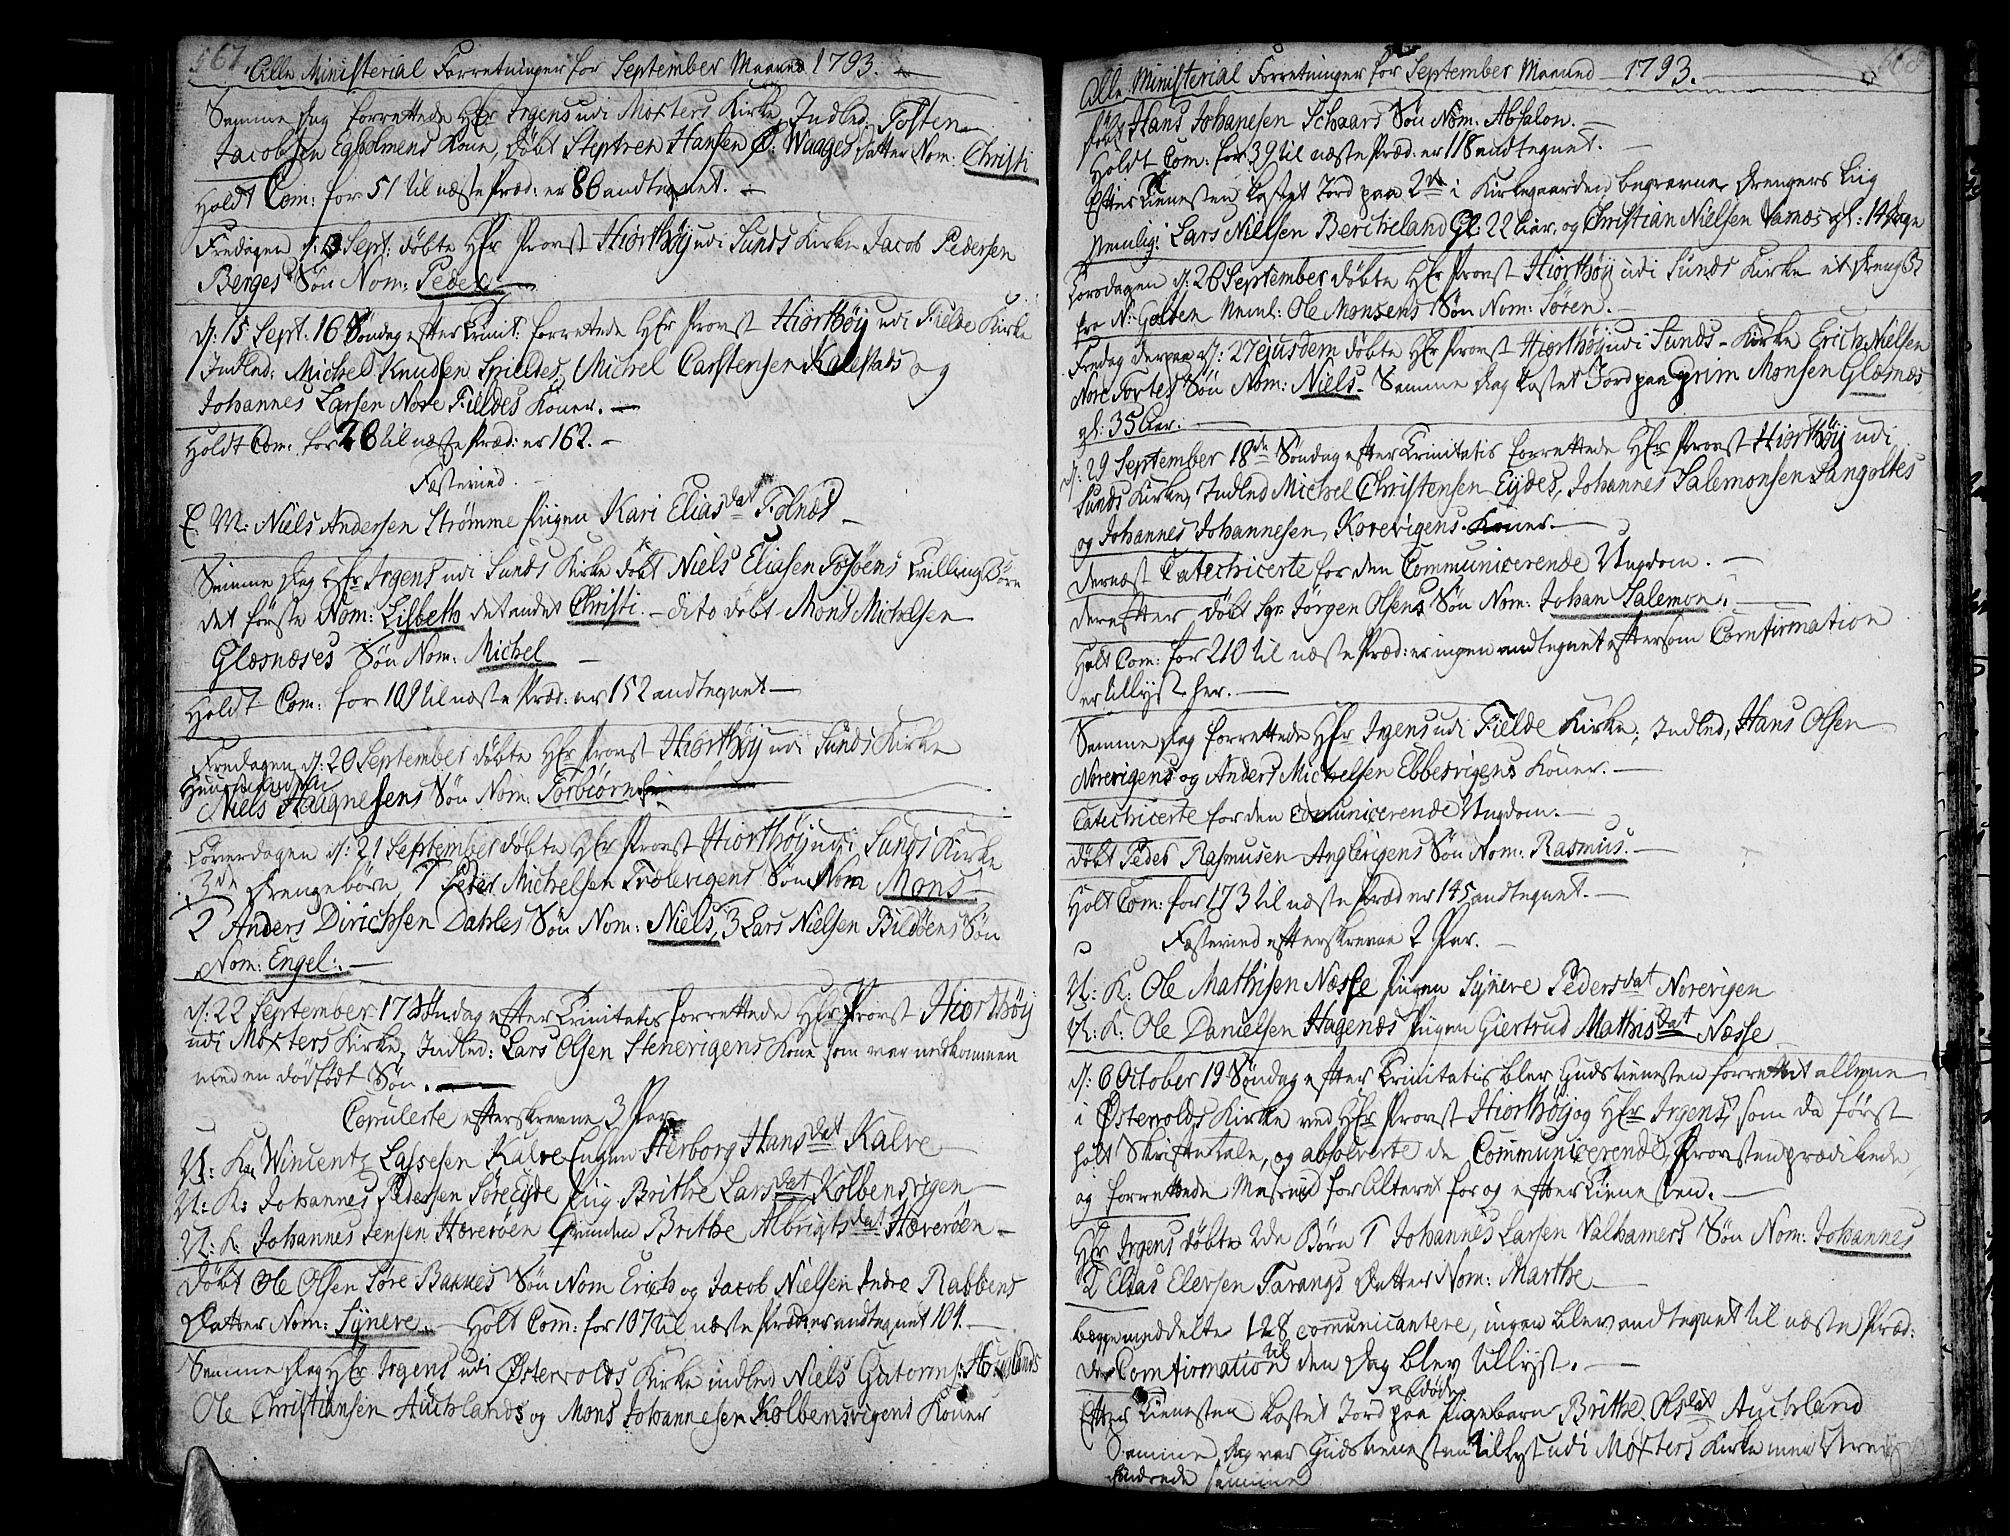 567.
Alle Ministerial Forretninger for September Maaned 1793.
Samme Dag forrettede Hr Irgens udi Møxters Kirke, Indled Tosten
Jacobsen Egholmens Kone, døbt Stephren Hansen Ø: Waages Datter Nom: Christi
Holdt Com: for 51 til næste Præd: er 86 andtegnet.
Fredagen d: 13 Sept: døbte Hr Provst Hiorthøy udi Sunds Kirke Jacob Pedersen
Berges Søn Nom: Peder
d: 15 Sept. 16 Søndag efter Trinit: forrettede Hr Provst Hiorthøy udi Fielde Kirke
Indled: Michel Knudsen Spildes, Michel Carstensen Kalestads og
Johannes Larsen Nore Fieldes Koner.
Holdt Com: for 26 til næste Præd: er 162.
Fæsteviud.
E. M: Niels Andersen Strømme Pigen Kari Eliasdat Tolnæs
Samme Dag Hr Irgens udi Sunds Kirke døbt Niels Eliasen Tofsøens Tvilling Børn
det første Nom: Lisbeth det andet Christi. - dito døbt Mons Michelsen
Glæsnæses Søn Nom: Michel
Holdt Com: for 109 til næste Præd: er 152 andtegnet
Fredagen d: 20 September døbte Hr Provst Hiorthøy udi Sunds Kirke
Niels Haagnesens Søn Nom: Torbiørn
Løverdagen d: 21 September døbte Hr Provst Hiorthøy udi Sunds Kirke
3de Drengebørn, 1 Peder Michelsen Trolevigens Søn Nom Mons
2 Anders Dirichsen Dahles Søn Nom: Niels, 3 Lars Nielsen Bildøens Søn
Nom: Engel.
d: 22 September 17 Søndag efter Trinitatis forrettede Hr Provst Hiorthøy
udi Møxters Kirke, Indled: Lars Olsen Stenevigens Kone som var nedkommen
med en dødfødt Søn.
Copulerte efterskrevne 3 Par
U: K: Wincentz Lassesen Kalve Enken Herborg Hansdat Kalve
U: K: Johannes Pedersen Søre Eyde Pig Brithe Larsdat Kolbensvigen
U: K: Johannes Jensen Hæverøen Qvinden Brithe Albrigtsdat Hæverøen
Døbt Ole Olsen Søre Bakkes Søn Nom Erich og Jacob Nielsen Indre Rabbens
Datter Nom: Syneve. - Holt Com: for 107 til næste Præd: er andtegnet 104.
Samme Dag Hr Irgens udi Østervolds Kirke indled Niels Gutorms: Houglands
Ole Christiansen Auchlands og Mons Johannesen Kolbensvigens Koner
568
Alle Ministerial Forretninger for September Maaned 1793.
døbt Hans Johanesen Schaars Søn Nom: Absalon.
Holdt Com: for 39 til næste Præd: er 118 andtegnet.
Efter Tienesten Kastet Jord paa 2de i Kirkegaarden begravne Drengers Liig
Nemlig: Lars Nielsen Bercheland Gl: 22 Aar, og Christian Nielsen Vamos gl: 14 Dage
Torsdagen d: 26 September døbte Hr Provst Hiorthøy udi Sunds Kirke et Drengeb
fra N: Golten Neml: Ole Monsens Søn Nom: Søren.
Fredag derpaa d: 27 ejusdem døbte Hr Provst Hiorthøy udi Sunds Kirke Erich Nielsen
Nore Toftes Søn Nom: Niels. Samme Dag Kastet Jord paa Grim Monsen Glæsnæs
gl: 35 Aar.
d: 29 September 18de Søndag efter Trinitatis forrettede Hr Provst Hiorthøy udi
Sunds Kirke, Indled Michel Christensen Eydes, Johannes Salemonsen Sangoltes
og Johannes Johannesen Korevigens Koner.
dernæst Catechicerte for den Communicerende Ungdom.
derefter døbt Sgr Jørgen Olsens Søn Nom: Johan Salemon.
Holt Com: for 210 til næste Præd: er ingen andtegnet eftersom Comfirmation
er tillyst her.
Samme Dag forrettede Hr Irgens udi Fielde Kirke; Indled, Hans Olsen
Norevigens og Anders Michelsen Ebbesvigens Koner.
Catechicerte for den Comunicerende Ungdom.
døbt Peder Rasmusen Anglevigens Søn Nom: Rasmus.
Holt Com: for 173 til næste Præd er 145 andtegnet.
Fæsteviud efterskrevne 2 Par.
U: K: Ole Mathisen Næsse Pigen Syneve Pedersdat Norevigen
U: K: Ole Danielsen Hagenæs Pigen Giertrud Mathisdat Næsse
d: 6 October 19 Søndag efter Trinitatis blev Gudstienesten forrettet allene
i Østervolds Kirke ved Hr Provst Hiorthøy og Hr Irgens, som da først
holt Skriftetale, og absolverte de Communicerende, Provsten prædikede,
og forrettede Messen for Alteret for og efter Tienesten.
Hr Irgens døbte 2de Børn 1 Johannes Larsen Valhamers Søn Nom: Johannes
2 Elias Elevsen Tarangs Datter Nom: Marthe
begge meddelte 128 communicantere, ingen blev andtegnet til næste Præd:
da Comfirmation til den Dag blev tillyst.
Efter Tienesten Kastet Jord paa et død Pigebarn Brithe Olsdat Auchland
Samme Dag var Gudstienesten tillyst udi Møxters Kirke men
hindrede samme